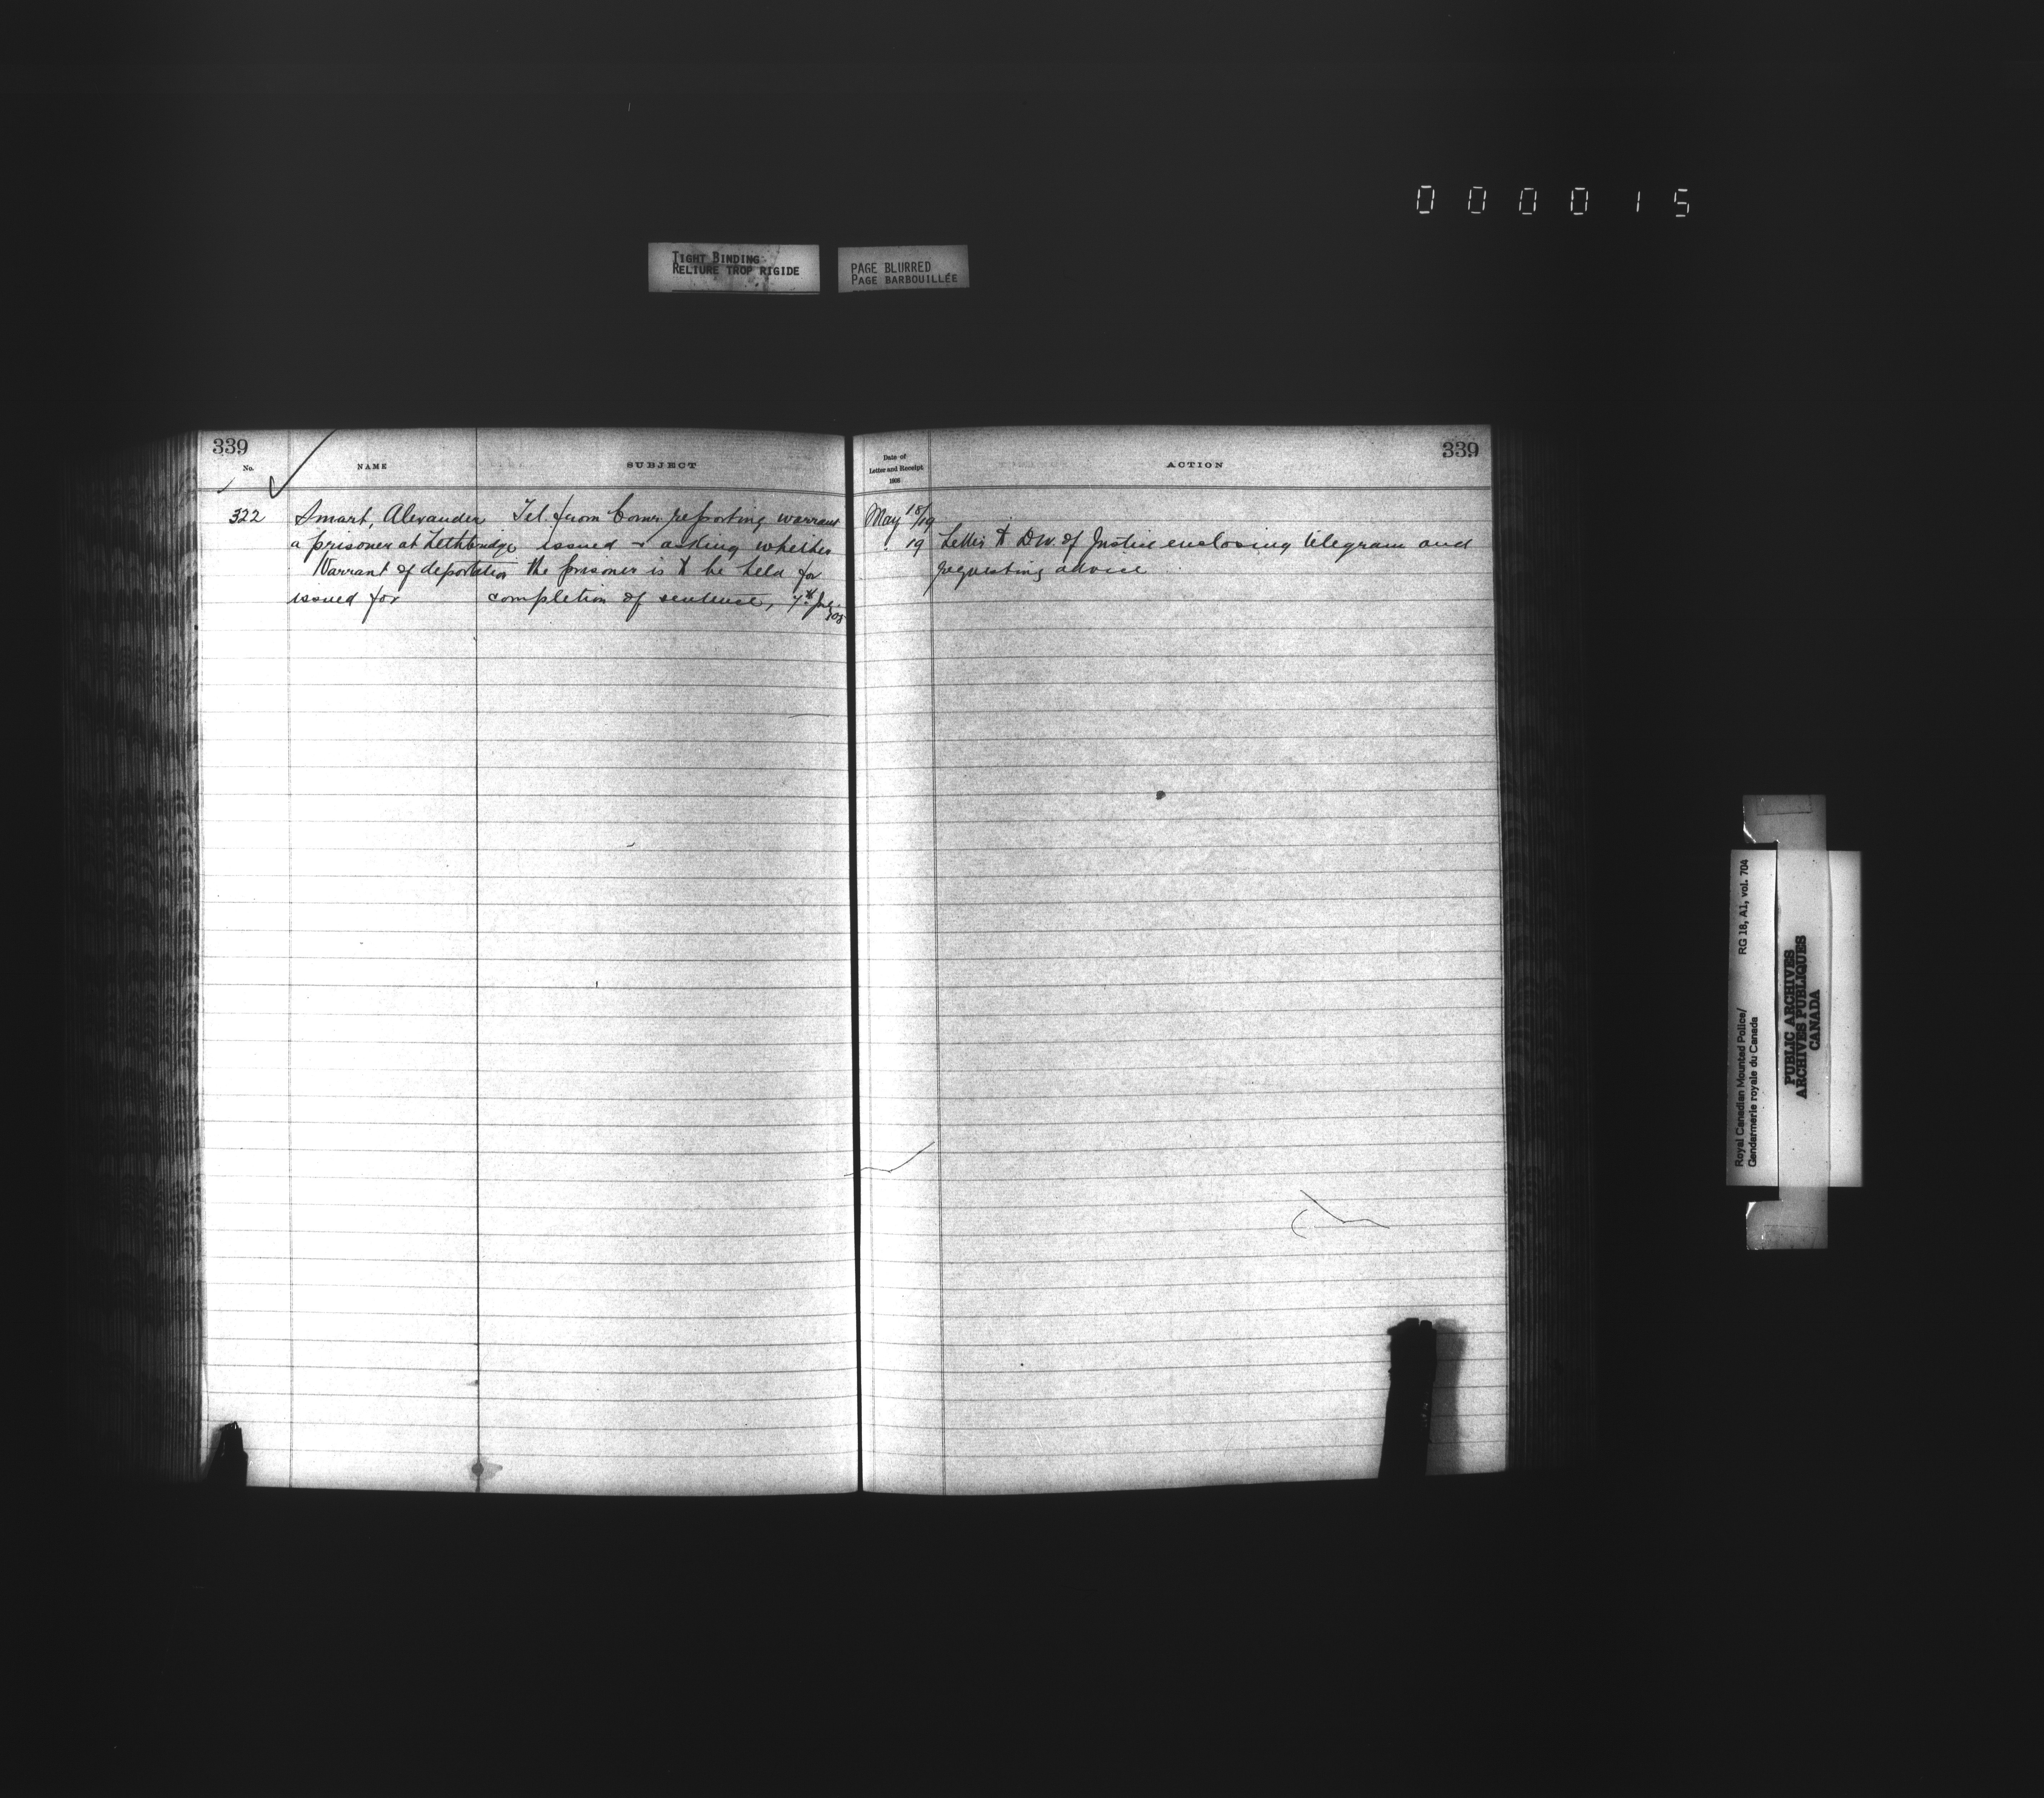 000015
TIGHT BINDING
RELIURE TROP RIGIDE
PAGE BLURRED
PAGE BARBOUILLÉE
339
No.
NAME
SUBJECT
322
Smart, Alexander
a prisoner at Lethbridge
Warrant of deportation
issued for
Tel. from Comr. reporting warrant
issued & asking whether
the prisoner is to be held for
completion of sentence, 7th
Date of
Letter and Receipt
1908
ACTION
339
May 18/19
" 19
Letter to D.M. of Justice enclosing telegram and
requesting advice
Royal Canadian Mounted Police/
Gendarmerie royale du Canada
RG 18, A1, vol. 704
PUBLIC ARCHIVES
ARCHIVES PUBLIQUES
CANADA